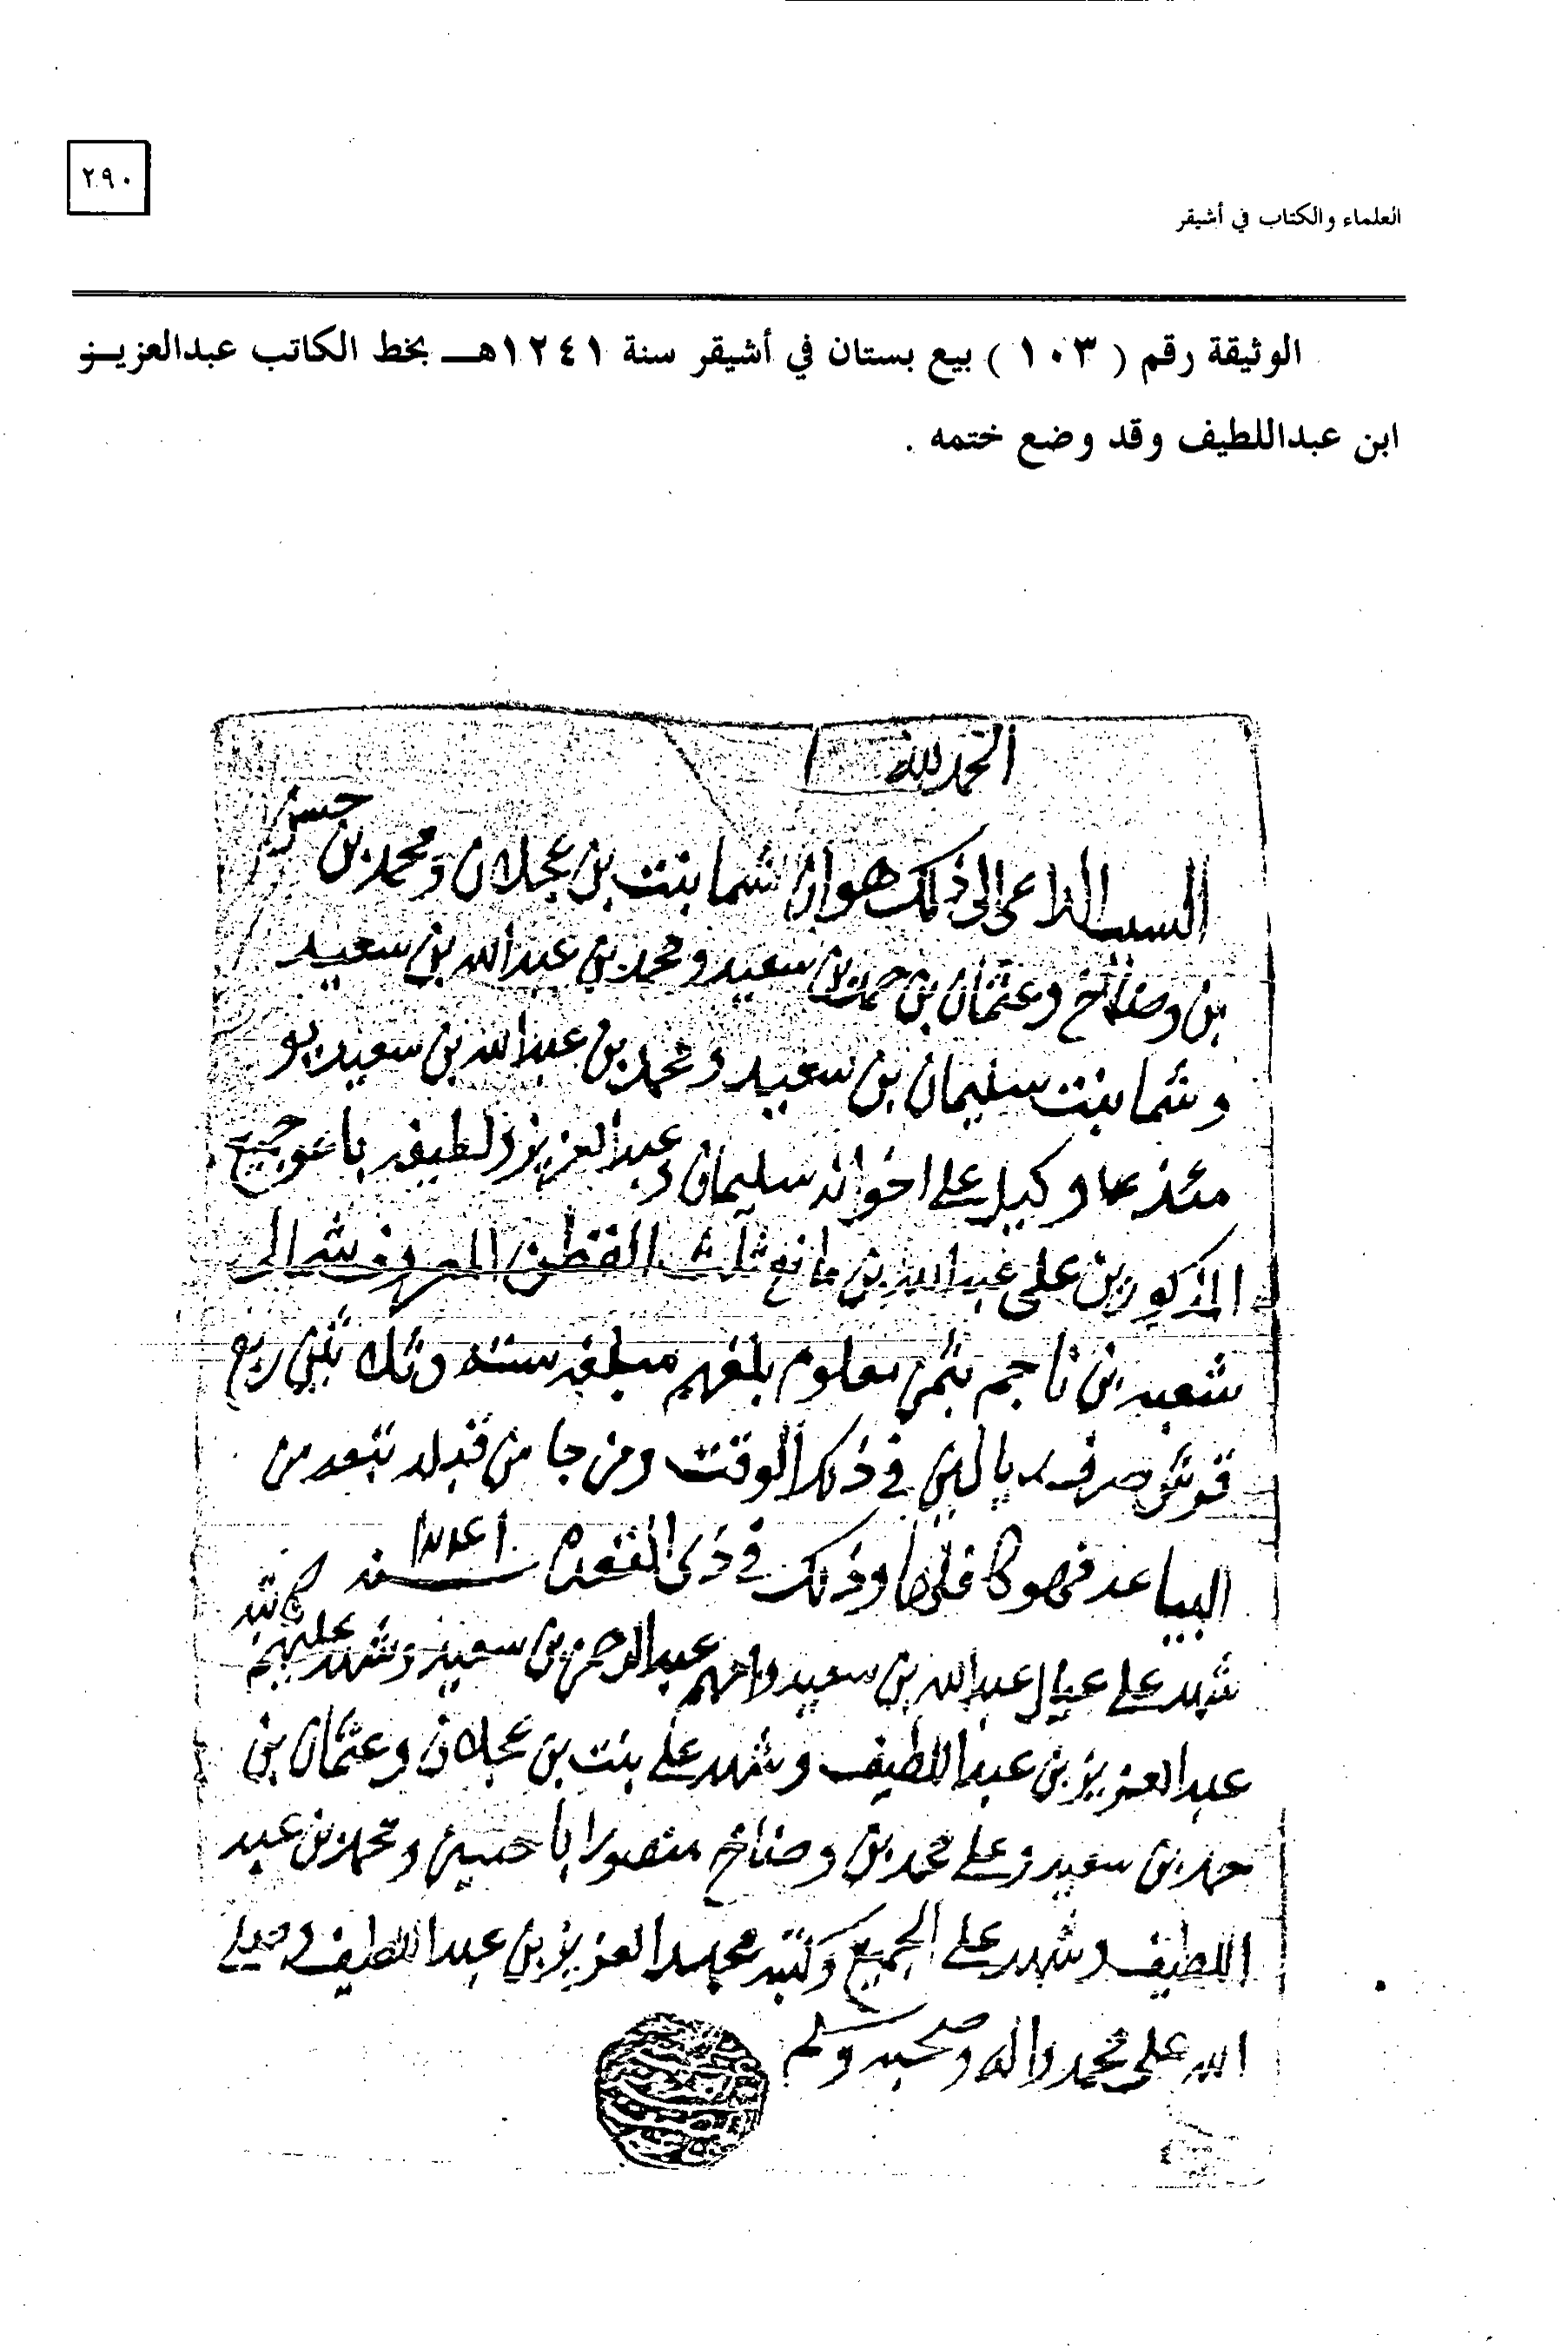 ٢٩٠
العلماء والكتاب في أشيقر
الوثيقة رقم ( ١٠٣ ) بيع بستان في أشيقر سنة ١٢٤١هـ بخط الكاتب عبدالعزيز
ابن عبداللطيف وقد وضع ختمه .
الحمد لله
السبب الداعي الى ذلك هو ان شما بنت بن عجلان ومحمد بن حسن
بن وضاخ وعثمان بن حمد بن سعيد ومحمد بن عبدالله بن سعيد
وشما بنت سليمان بن سعيد ومحمد بن عبدالله بن سعيد يو
مئذ وكيل على اخوانه سليمان وعبدالعزيز ولطيفه باعو جميع
المذكورين على عبدالله بن مانع ثلث القطن المعروف شرالى
شعيب بن ناجم بثمن معلوم بلغهم مبلغه سته وثلث ربع
قوش صرف ريالين في ذلك الوقت ومن جا من قبله تبعه من
البياعه فهو كافلها وذلك في ذى القعده سنه ١٢٤١
شهد على عيال عبدالله بن سعيد وامهم عبدالرحمن بن سعيد وشهد عليهم كاتبه
عبدالعزيز بن عبداللطيف وشهد على بنت بن عجلان وعثمان بن
حمد بن سعيد وعلى محمد بن وضاخ منصور ابا حسين ومحمد بن عبد
اللطيف وشهد على الجميع وكتبه عبدالعزيز بن عبداللطيف وصلى
الله على محمد واله وصحبه وسلم